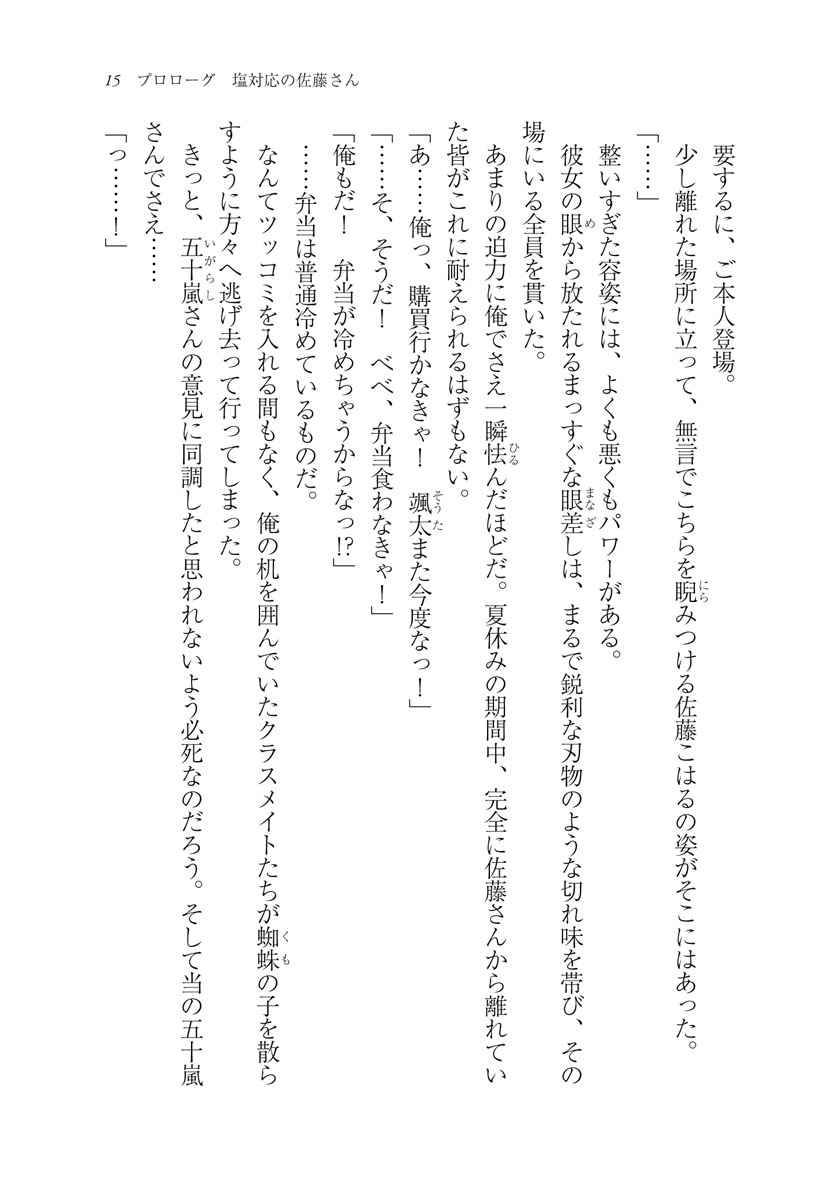 15 プロローグ 塩対応の佐藤さん
要するに、ご本人登場。
少し離れた場所に立って、無言でこちらを睨みつける佐藤こはるの姿がそこにはあった。
「……」
整いすぎた容姿には、よくも悪くもパワーがある。
彼女の眼から放たれるまっすぐな眼差しは、まるで鋭利な刃物のような切れ味を帯び、その
場にいる全員を貫いた。
あまりの迫力に俺でさえ一瞬怯んだほどだ。夏休みの期間中、完全に佐藤さんから離れてい
た皆がこれに耐えられるはずもない。
「あ……俺っ、購買行かなきゃ！ 颯太また今度なっ！」
「……そ、そうだ！ べべ、弁当食わなきゃ！」
「俺もだ！ 弁当が冷めちゃうからなっ!?」
……弁当は普通冷めているものだ。
なんてツッコミを入れる間もなく、俺の机を囲んでいたクラスメイトたちが蜘蛛の子を散ら
すように方々へ逃げ去って行ってしまった。
きっと、五十嵐さんの意見に同調したと思われないよう必死なのだろう。そして当の五十嵐
さんでさえ……
「っ……！」